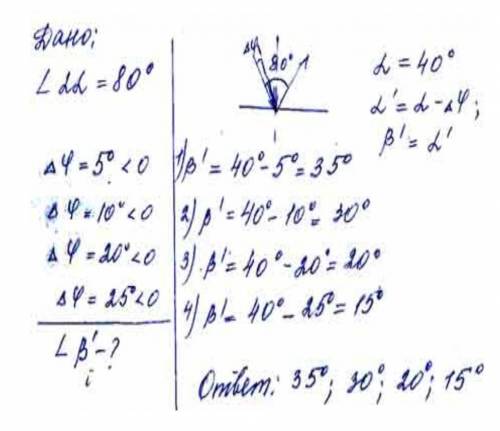 Дано:
∠2α = 80°
Δφ = 5° < 0
Δφ = 10° < 0
Δφ = 20° < 0
Δφ = 25° < 0
∠β' - ?
Δφ 80° 1
α = 40°
α' = α - Δφ;
β' = α'
1) β' = 40° - 5° = 35°
2) β' = 40° - 10° = 30°
3) β' = 40° - 20° = 20°
4) β' = 40° - 25° = 15°
Ответ: 35°; 30°; 20°; 15°